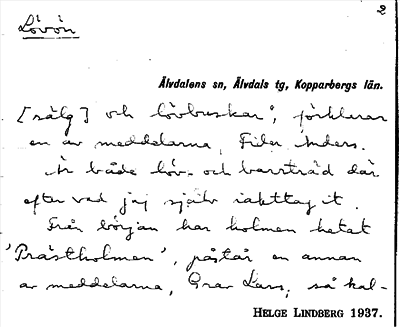 Lövön
2
Älvdalens sn, Älvdals tg, Kopparbergs län.
[sälg] och lövbuskar", förklarar
en av meddelarna, Filer Anders.
Är både löv- och barrträd där
efter vad jag själv iakttagit.
Från början har holmen hetat
'Prästholmen', påstår en annan
av meddelarna, Grav Lars; så kal-
HELGE LINDBERG 1937.